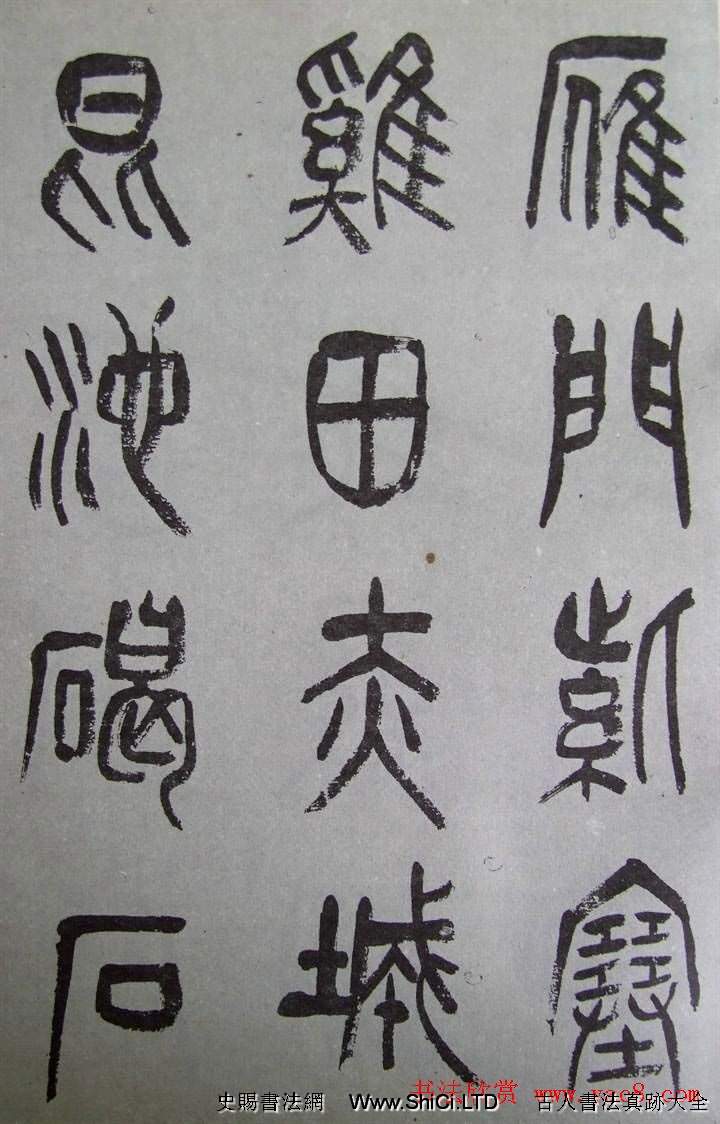 雁門紫塞
雞田赤城
昆池碣石
书法欣赏 www.yac8.com
史賜書法網 Www.ShiCi.LTD 古人書法真跡大全